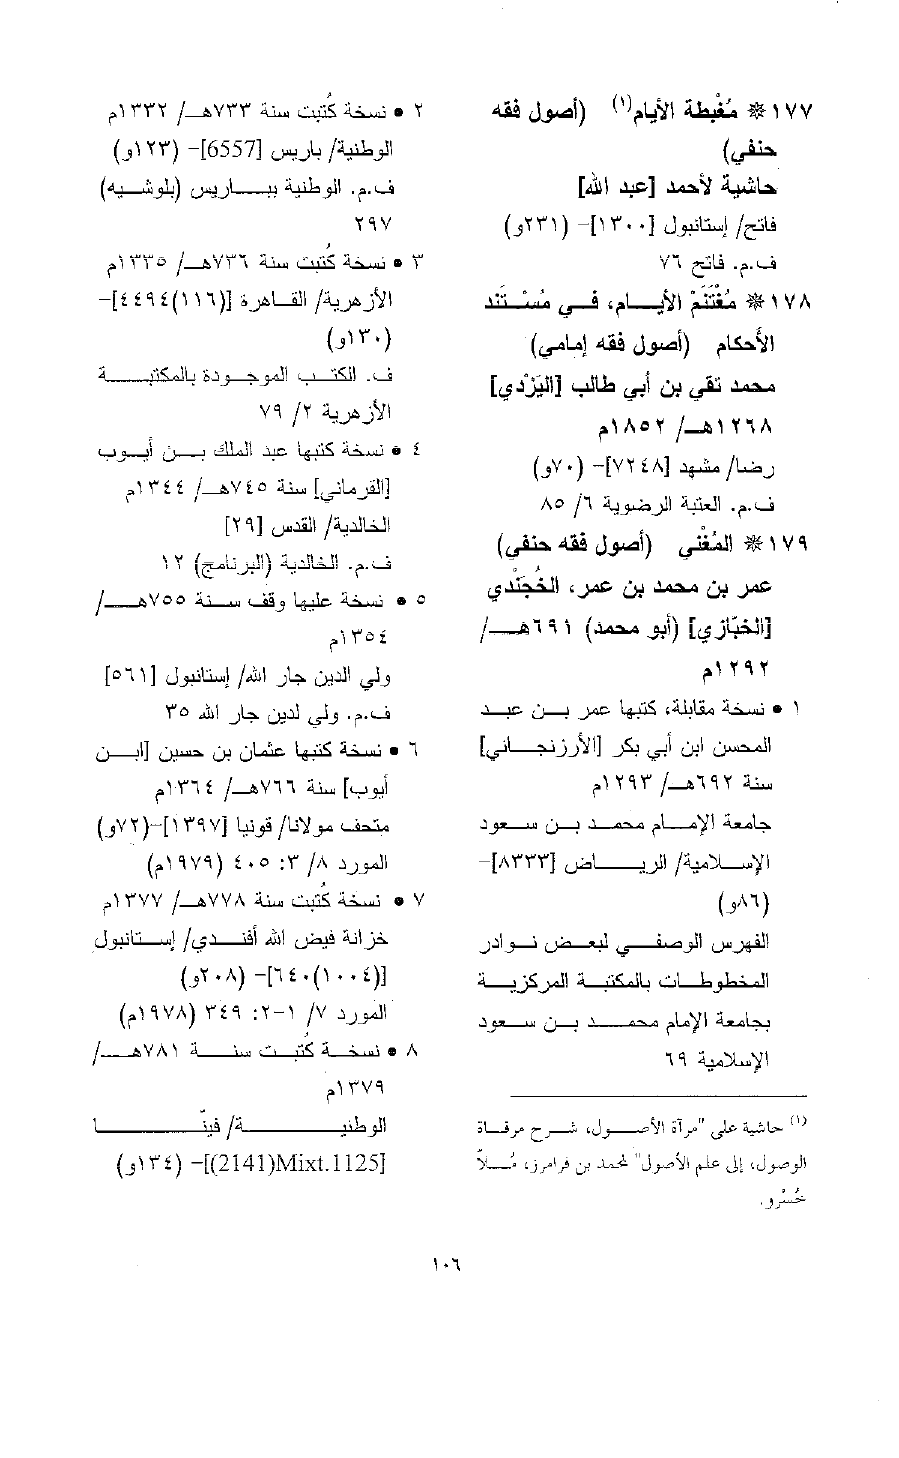 ١٧٧ ❊ مُغْبِطة الأيام(١) (أصول فقه
حنفي)
حاشية لأحمد [عبد الله]
فاتح/ إستانبول [١٣٠٠]- (٢٣١و)
ف.م. فاتح ٧٦
١٧٨ ❊ مُغْتَنَمْ الأيـــام، فـي مُسْـتَند
الأحكام (أصول فقه إمامي)
محمد تقي بن أبي طالب [اليَزْدي]
١٢٦٨هـ/ ١٨٥٢م
رضا/ مشهد [٧٢٤٨]- (٧٠و)
ف.م. العتبة الرضوية ٦/ ٨٥
١٧٩ ❊ المُغْني (أصول فقه حنفي)
عمر بن محمد بن عمر، الخُجَنْدي
[الخبّازي] (أبو محمد) ٦٩١هـ/
١٢٩٢م
١ • نسخة مقابلة، كتبها عمر بـن عبـد
المحسن ابن أبي بكر [الأرزنجـاني]
سنة ٦٩٢هـ/ ١٢٩٣م
جامعة الإمـام محمـد بـن سـعود
الإسـلامية/ الريـــاض [٨٣٣٣]-
(٨٦و)
الفهرس الوصفـي لبعـض نـوادر
المخطوطـات بالمكتبـة المركزيـة
بجامعة الإمام محمـد بـن سـعود
الإسلامية ٦٩
(١) حاشية على "مرآة الأصـول، شـرح مرقـاة
الوصول، إلى علم الأصول" لمحمد بن فرامرز، مُـلاّ
خُسْرو.
٢ • نسخة كُتبت سنة ٧٣٣هـ/ ١٣٣٢م
الوطنية/ باريس [6557]- (١٢٣و)
ف.م. الوطنية ببـاريس (بلوشـيه)
٢٩٧
٣ • نسخة كُتبت سنة ٧٣٦هـ/ ١٣٣٥م
الأزهرية/ القـاهرة [(١١٦)٤٤٩٤]-
(١٣٠و)
ف. الكتـب الموجـودة بالمكتبـة
الأزهرية ٢/ ٧٩
٤ • نسخة كتبها عبد الملك بـن أيـوب
[القرماني] سنة ٧٤٥هـ/ ١٣٤٤م
الخالدية/ القدس [٢٩]
ف.م. الخالدية (البرنامج) ١٢
٥ • نسخة عليها وقف سـنة ٧٥٥هـ/
١٣٥٤م
ولي الدين جار الله/ إستانبول [٥٦١]
ف.م. ولي لدين جار الله ٣٥
٦ • نسخة كتبها عثمان بن حسين [ابـن
أيوب] سنة ٧٦٦هـ/ ١٣٦٤م
متحف مولانا/ قونيا [١٣٩٧]-(٧٢و)
المورد ٨/ ٣: ٤٠٥ (١٩٧٩م)
٧ • نسخة كُتبت سنة ٧٧٨هـ/ ١٣٧٧م
خزانة فيض الله أفنـدي/ إسـتانبول
[(١٠٠٤)٦٤٠]- (٢٠٨و)
المورد ٧/ ١-٢: ٣٤٩ (١٩٧٨م)
٨ • نسخـة كُتبـت سنـة ٧٨١هـ/
١٣٧٩م
الوطنيـــة/ فينّـــا
[(2141)Mixt.1125]- (١٣٤و)
١٠٦